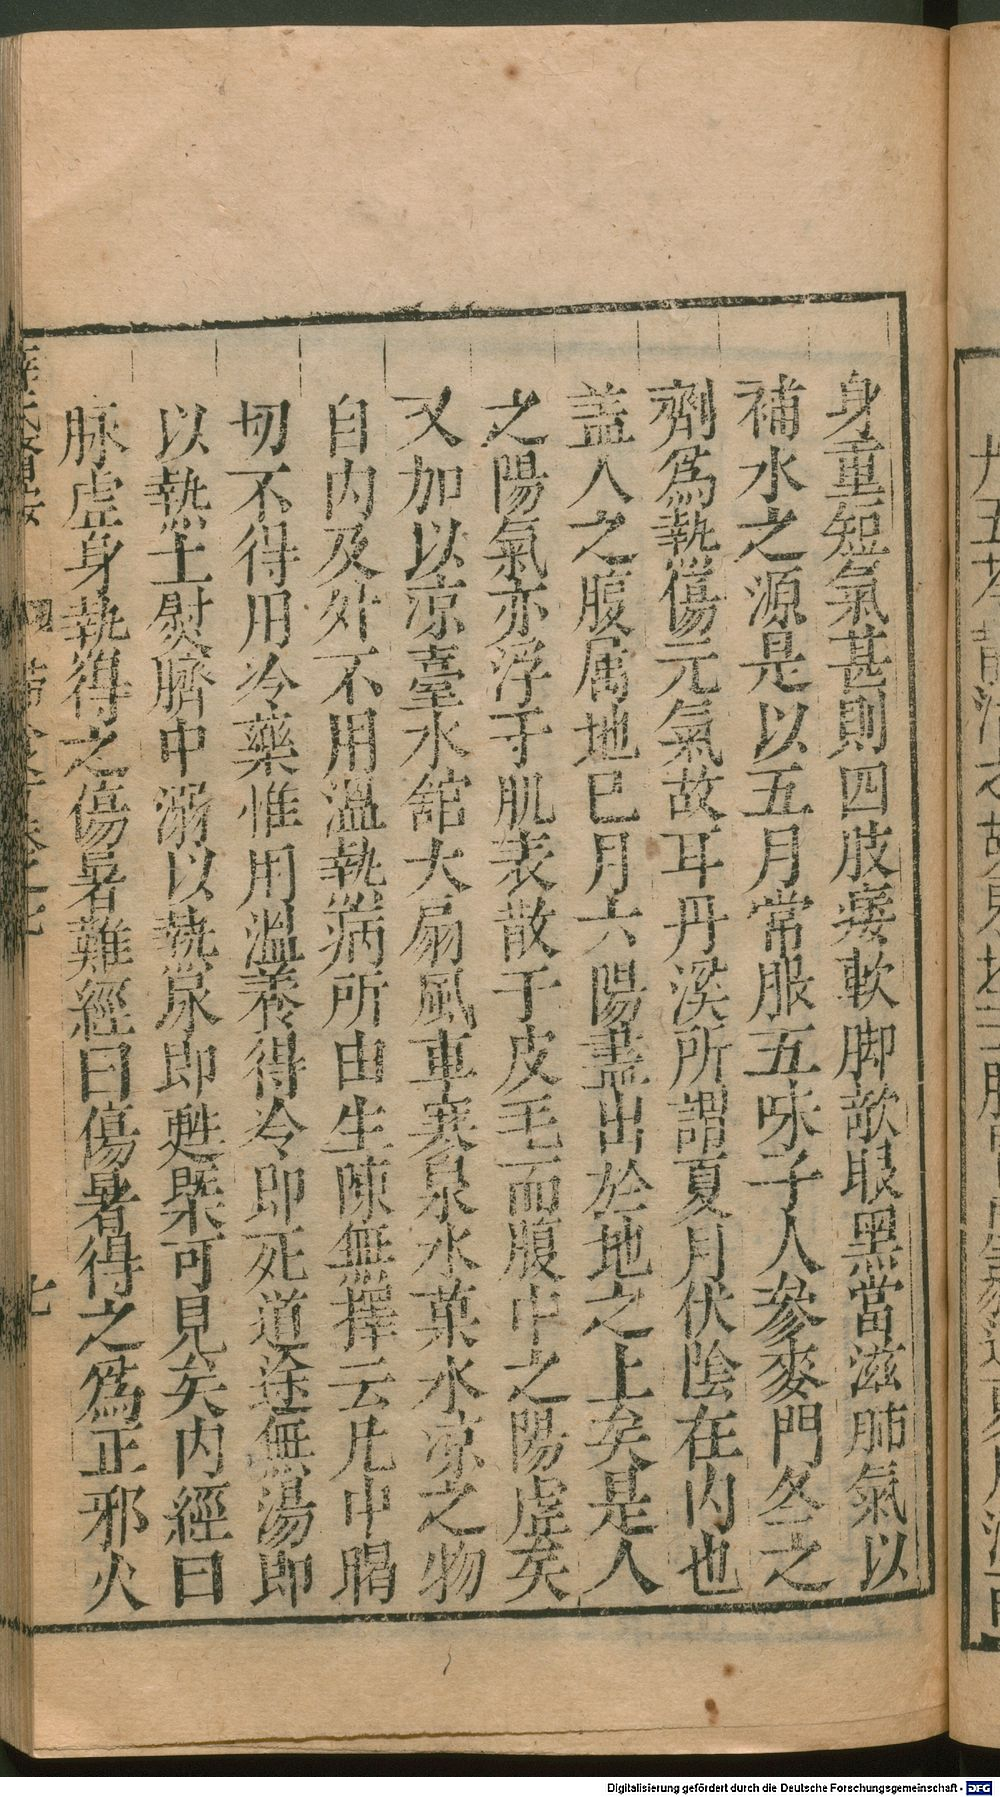 身重短氣甚則四肢痿軟脚欹眼黑當滋肺氣以
補水之源是以五月常服五味子人參麥門冬之
劑爲熱傷元氣故耳丹溪所謂夏月伏陰在内也
盖人之腹属地巳月六陽盡出於地之上矣是人
之陽氣亦浮于肌表散于皮毛而腹中之陽虚矣
又加以凉臺水舘大扇風車寒泉水菓水凉之物
自内及外不用溫熱病所由生陳無擇云凡中暍
切不得用冷藥惟用溫養得冷即死道途無湯即
以熱土熨臍中溺以熱尿即甦槩可見矣内經曰
脉虚身熱得之傷暑難經曰傷暑得之爲正邪火
七
Digitalisierung gefördert durch die Deutsche Forschungsgemeinschaft - DFG